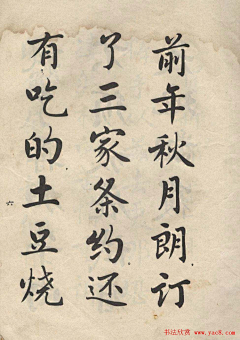 前年秋月朗订
了三家条约还
有吃的土豆烧
书法欣赏 www.yac8.com